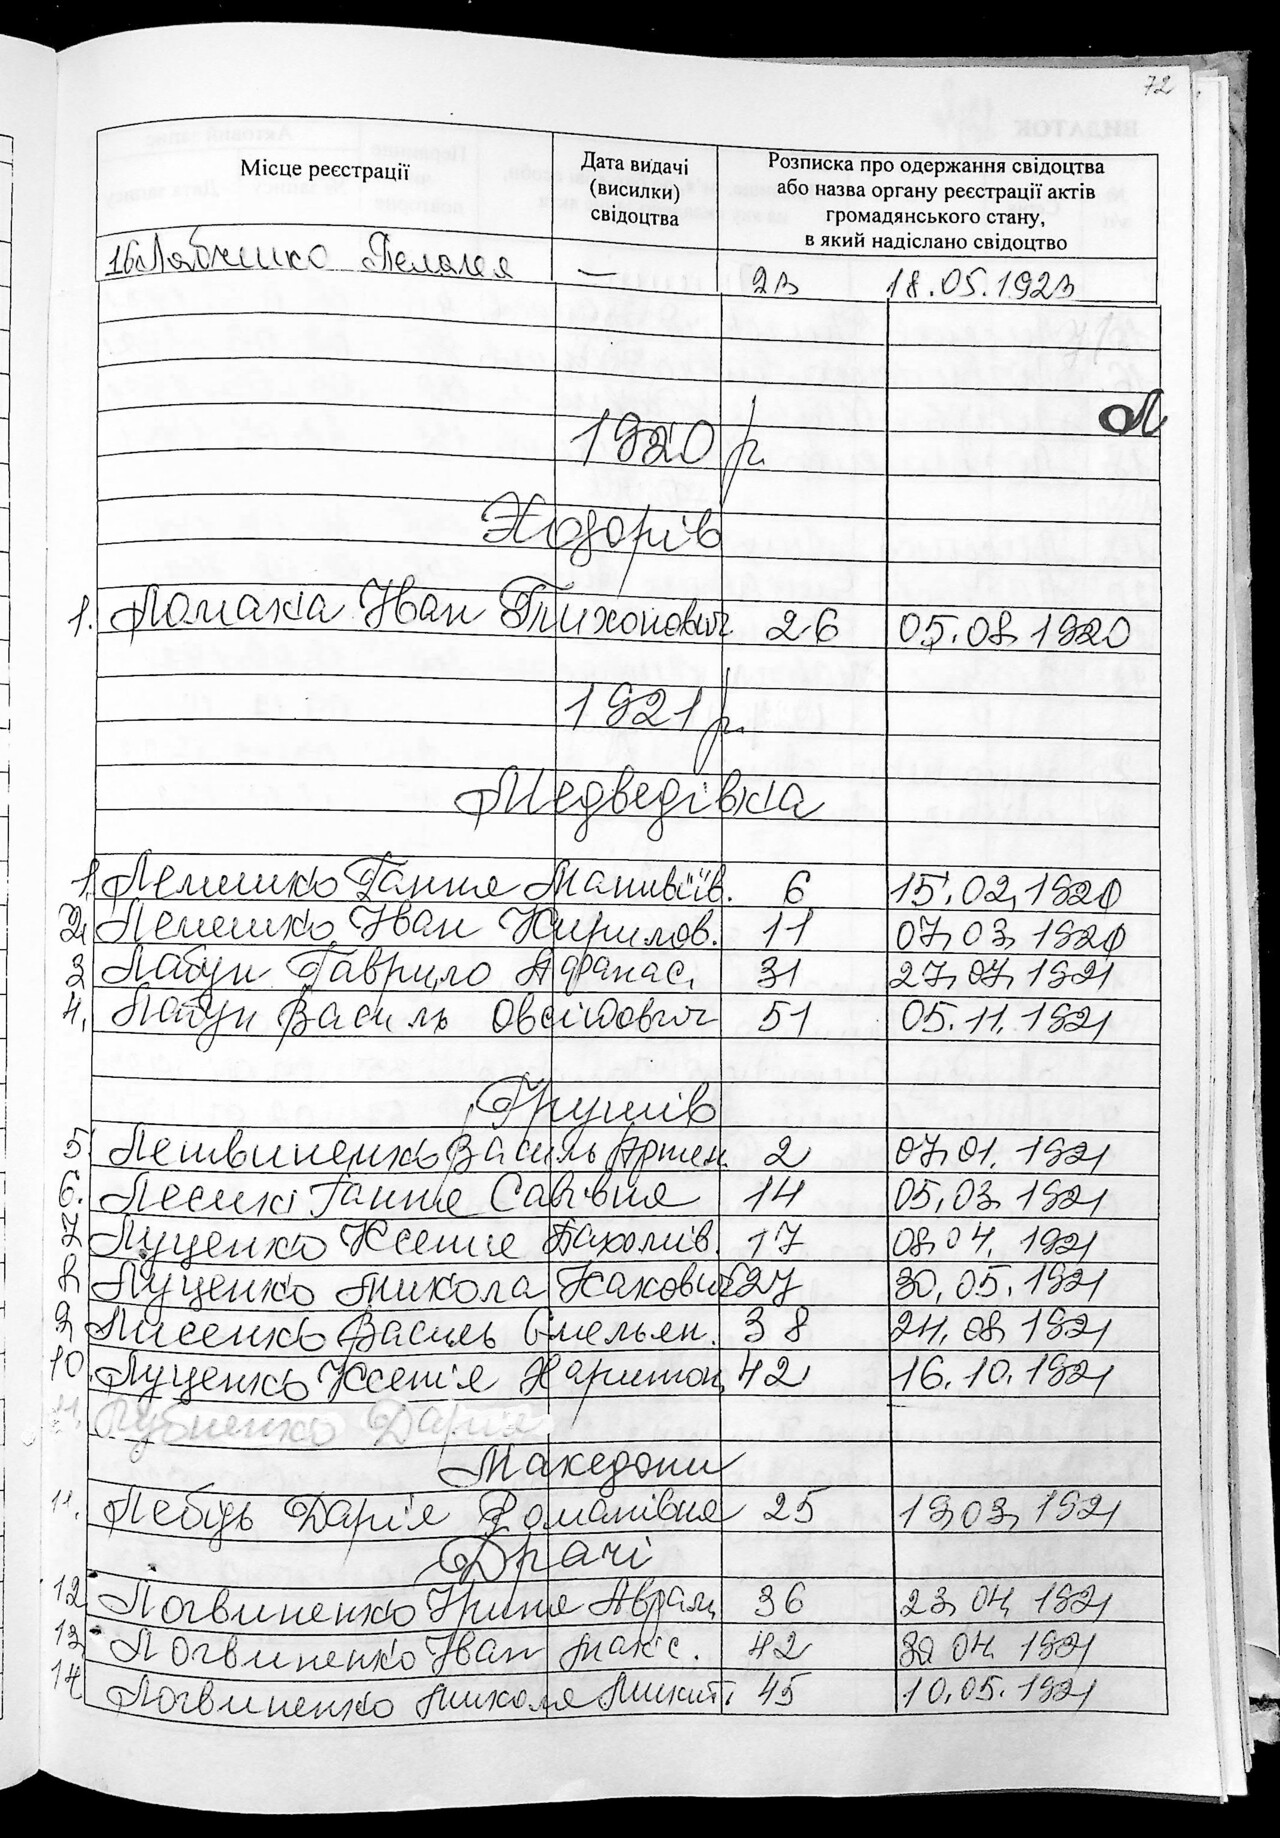 72
Місце реєстрації
Дата видачі
(висилки)
свідоцтва
Розписка про одержання свідоцтва
або назва органу реєстрації актів
громадянського стану,
в який надіслано свідоцтво
16 Пелагея — 23 18.05.1923
71
Л
1920 р.
Ходорів
1. Ломака Іван Тихонович 26 05.08.1920
1921 р.
Медведівка
1. Лемешко Ганна Матвіїв. 6 15.02.1921
2. Лемешко Іван Кирилов. 11 07.03.1921
3 Лабун Гаврило Афанас. 31 27.07.1921
4. Лабун Василь Овсійович 51 05.11.1921
Грушів
5. Летвиненко Василь Артем. 2 07.01.1921
6. Лесик Ганна Савівна 14 05.03.1921
7 Луценко Ксенія Пахомів. 17 08.04.1921
8 Луценко Микола 27 30.05.1921
9 Лисенко Василь Омельян. 38 24.08.1921
10. Луценко Ксенія Харитон. 42 16.10.1921
11. Лубненко Дарія
Македони
11. Лебідь Дарія Романівна 25 19.03.1921
Драчі
12 Логвиненко Ірина Аврам. 36 23.04.1921
13 Логвиненко Іван Макс. 42 30.04.1921
14 Логвиненко Микола Микит. 45 10.05.1921